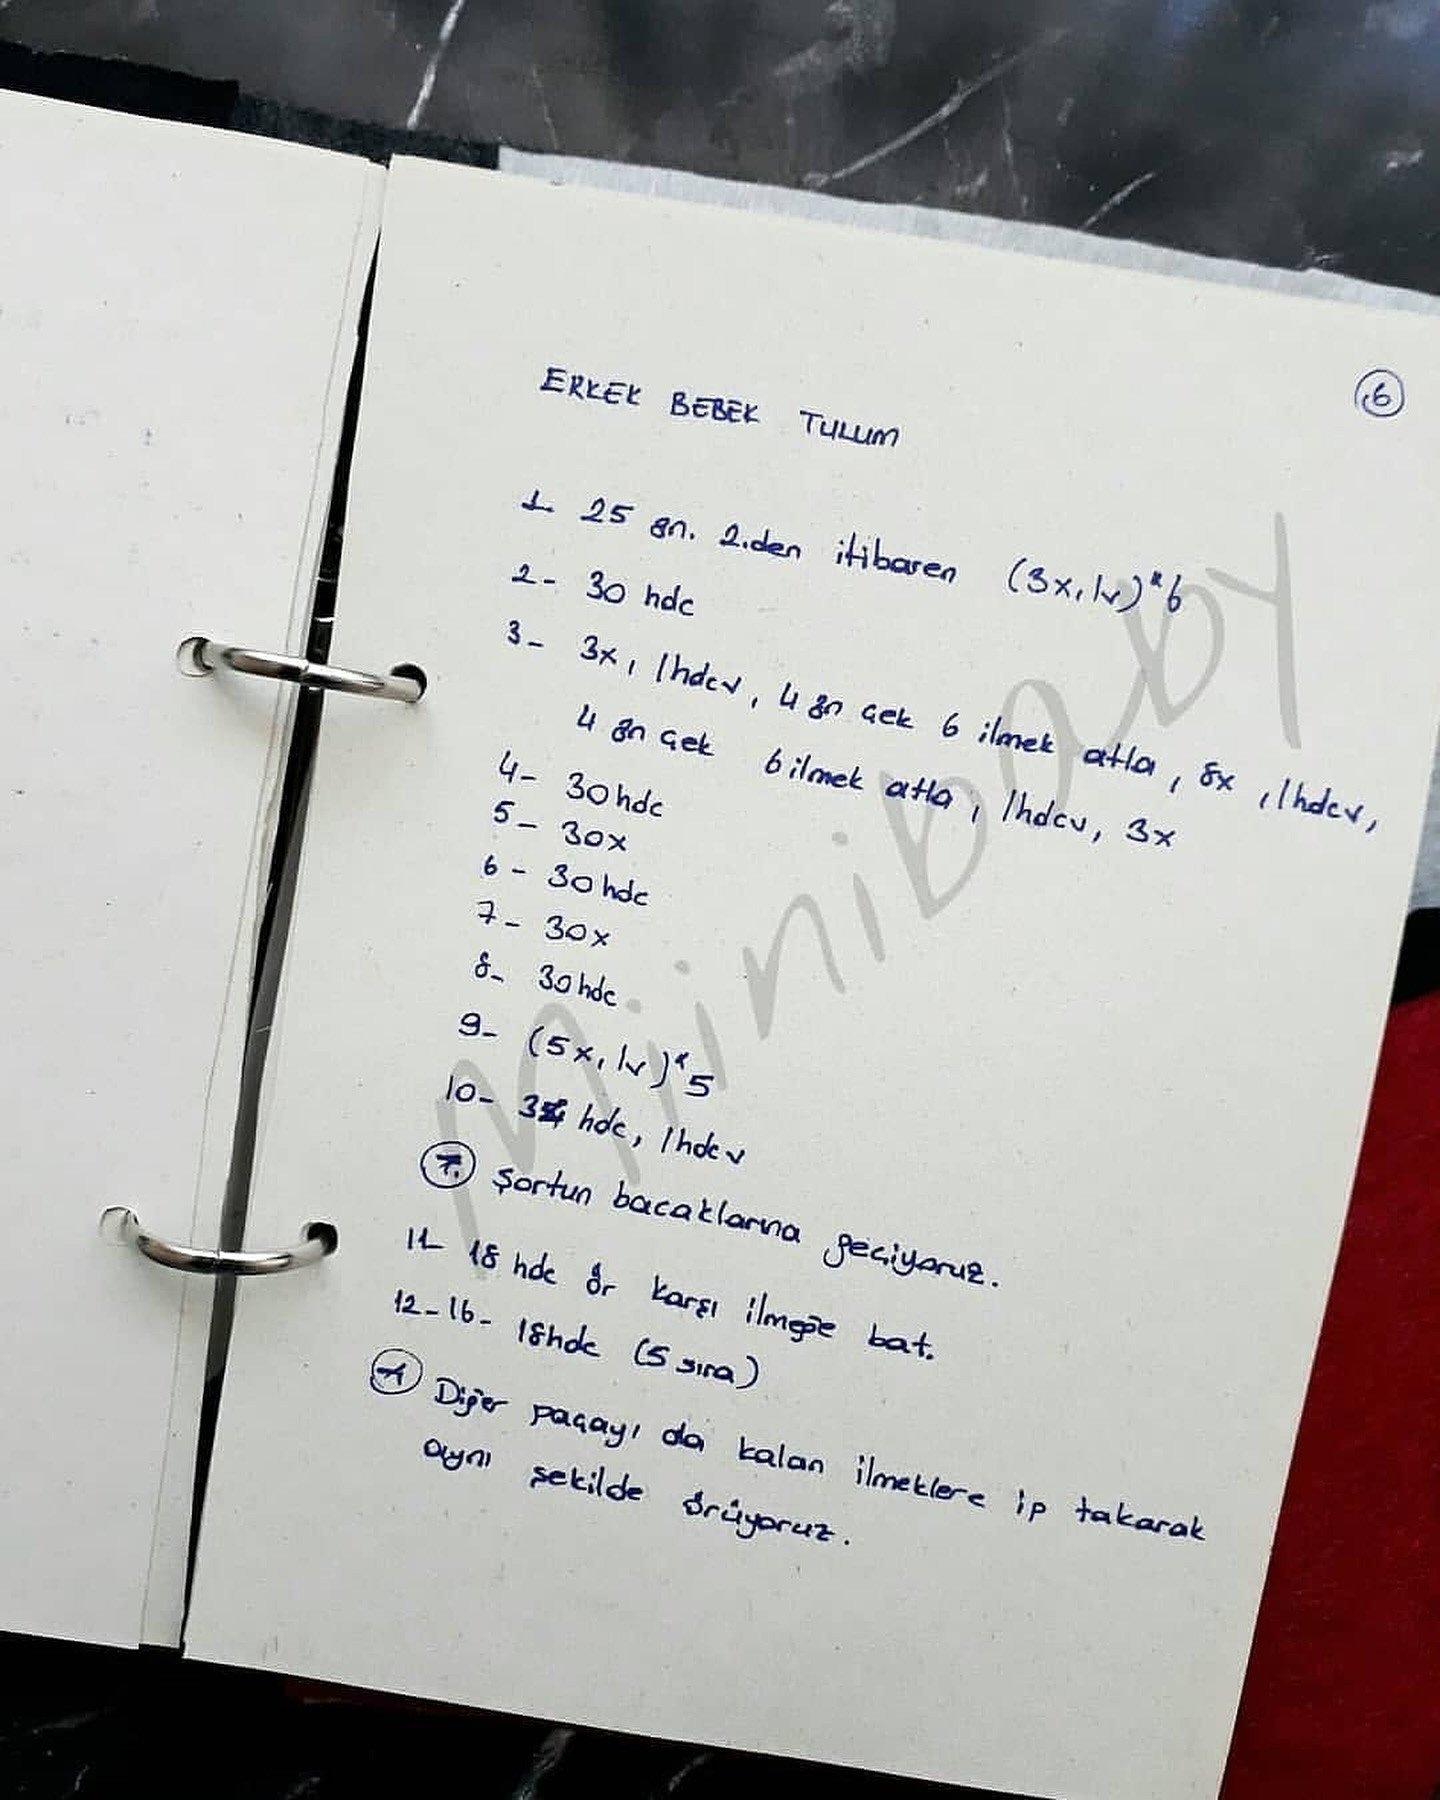 6
ERKEK BEBEK TULUM
1- 25 zn. 2.den itibaren (3x, 1v)*6
2- 30 hdc
3- 3x, 1hdcv, 4 zn çek 6 ilmek atla, 8x, 1hdcv,
4 zn çek 6 ilmek atla, 1hdcv, 3x
4- 30hdc
5- 30x
6- 30hdc
7- 30x
8- 30hdc
9- (5x, 1v)*5
10- 34 hdc, 1hdcv
Şortun bacaklarına geçiyoruz.
11- 18 hdc ör karşı ilmeğe bat.
12-16- 18hdc (5 sıra)
Diğer paçayı da kalan ilmeklere ip takarak
aynı şekilde örüyoruz.
Miinibaby